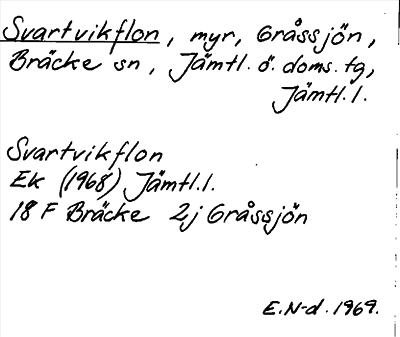 Svartvikflon, myr, Gråssjön,
Bräcke sn, Jämtl. ö. doms. tg,
Jämtl. l.
Svartvikflon
Ek (1968) Jämtl. l.
18 F Bräcke 2j Gråssjön
E. N-d. 1969.